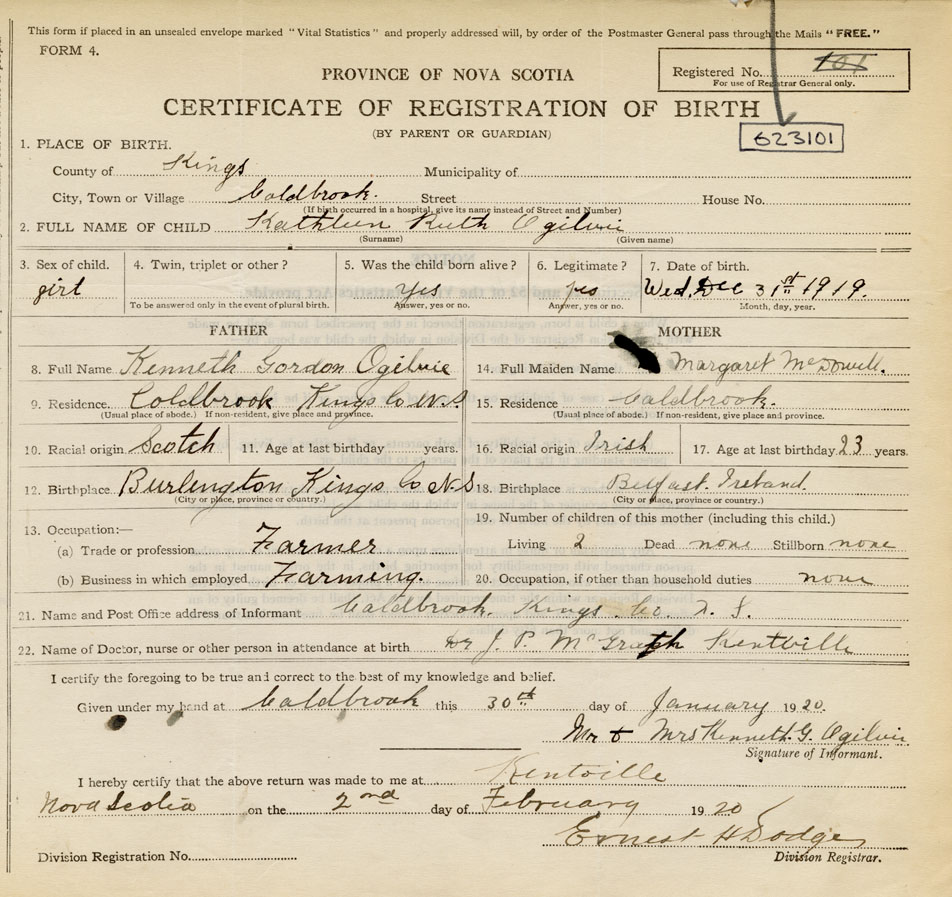 This form if placed in an unsealed envelope marked "Vital Statistics" and properly addressed will, by order of the Postmaster General pass through the Mails "FREE."
FORM 4.
PROVINCE OF NOVA SCOTIA
Registered No. 101
For use of Registrar General only.
CERTIFICATE OF REGISTRATION OF BIRTH
(BY PARENT OR GUARDIAN)
623101
1. PLACE OF BIRTH.
County of Kings Municipality of
City, Town or Village Coldbrook. Street House No.
(If birth occurred in a hospital, give its name instead of Street and Number)
2. FULL NAME OF CHILD Kathleen Ruth Ogilvie
(Surname) (Given name)
3. Sex of child. 4. Twin, triplet or other? 5. Was the child born alive? 6. Legitimate? 7. Date of birth.
girl Yes yes Wed, Dec 31st 1919.
To be answered only in the event of plural birth. Answer, yes or no. Answer, yes or no. Month, day, year.
FATHER MOTHER
8. Full Name Kenneth Gordon Ogilvie 14. Full Maiden Name Margaret McDowell.
9. Residence. Coldbrook Kings Co N.S. 15. Residence Coldbrook.
(Usual place of abode.) If non-resident, give place and province. (Usual place of abode.) If non-resident, give place and province.
10. Racial origin Scotch 11. Age at last birthday years. 16. Racial origin Irish 17. Age at last birthday 23 years.
12. Birthplace Burlington Kings Co N.S 18. Birthplace Belfast. Ireland.
(City or place, province or country.) (City or place, province or country.)
13. Occupation:— 19. Number of children of this mother (including this child.)
(a) Trade or profession Farmer Living 2 Dead none Stillborn none
(b) Business in which employed Farming. 20. Occupation, if other than household duties none
21. Name and Post Office address of Informant Coldbrook. Kings Co. N. S.
22. Name of Doctor, nurse or other person in attendance at birth Dr J. P. McGrath Kentville
I certify the foregoing to be true and correct to the best of my knowledge and belief.
Given under my hand at Coldbrook this 30th day of January 1920.
Mr & Mrs Kenneth G. Ogilvie
Signature of Informant.
I hereby certify that the above return was made to me at Kentville
Nova Scotia on the 2nd day of February 1920
Ernest H Dodge
Division Registration No. Division Registrar.